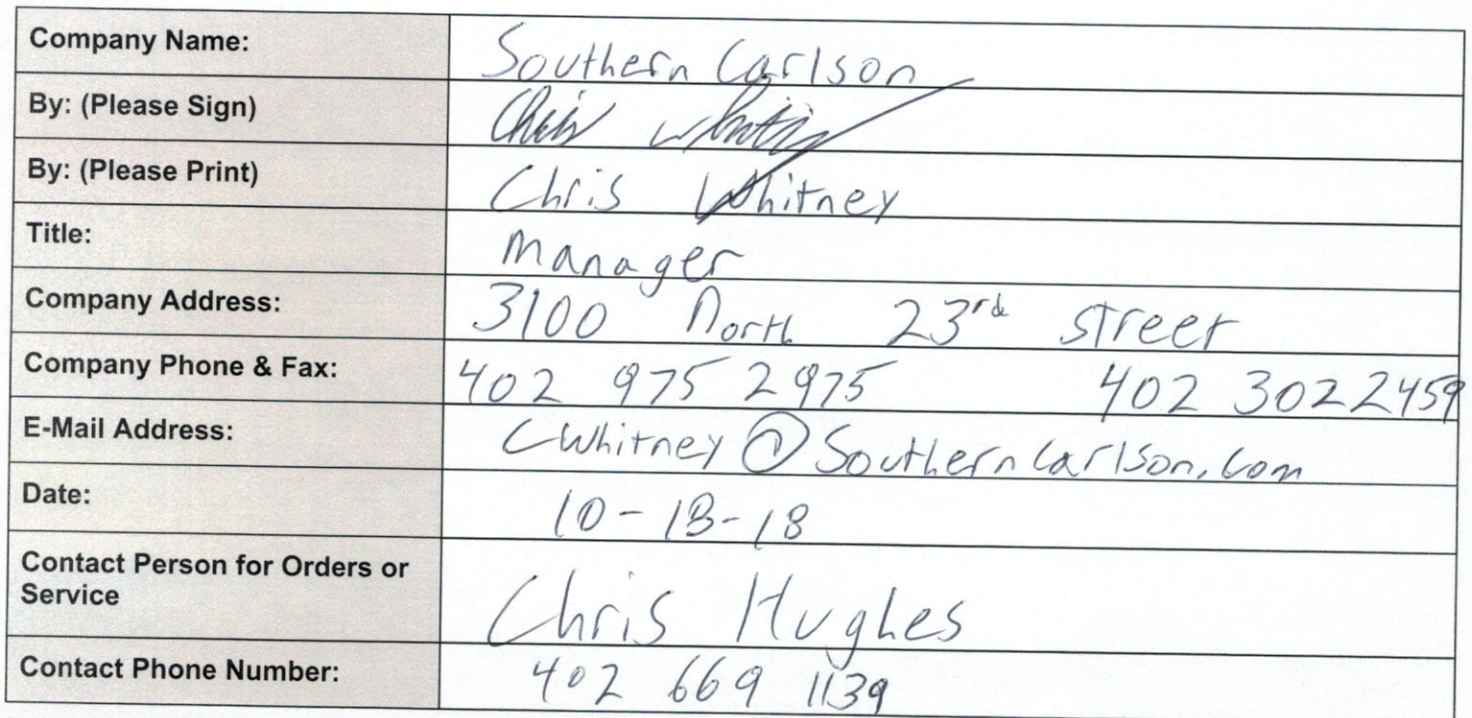 Company Name: Southern Carlson
By: (Please Sign) Chris Whitney
By: (Please Print) Chris Whitney
Title: Manager
Company Address: 3100 North 23rd street
Company Phone & Fax: 402 975 2975 402 302 2459
E-Mail Address: cwhitney@Southerncarlson.com
Date: 10-18-18
Contact Person for Orders or
Service Chris Hughes
Contact Phone Number: 402 669 1139